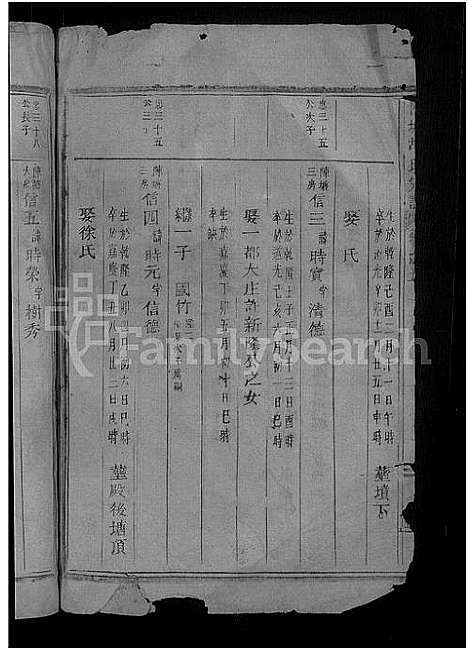 生於乾隆己酉二月十一日午時
卒於道光辛卯十二月廿五日申時 葬墳下
娶 氏
忠三十五公次子
陳塘三房信三諱時實字清德
生於乾隆壬子正月十二日酉時
卒於道光己亥六月初一日巳時
娶一都大庄許新隆公之女
生於嘉慶丁卯五月初十日巳時
卒缺
繼一子 國竹
忠三十五公三子
陳塘三房信四諱時元字信德
生於乾隆乙卯 月初六日巳時
卒於嘉慶丁丑八月廿二日戌時 葬殿後塘頂
娶徐氏
忠三十八公長子
陳塘大房信五諱時榮字樹秀
FamilySearch